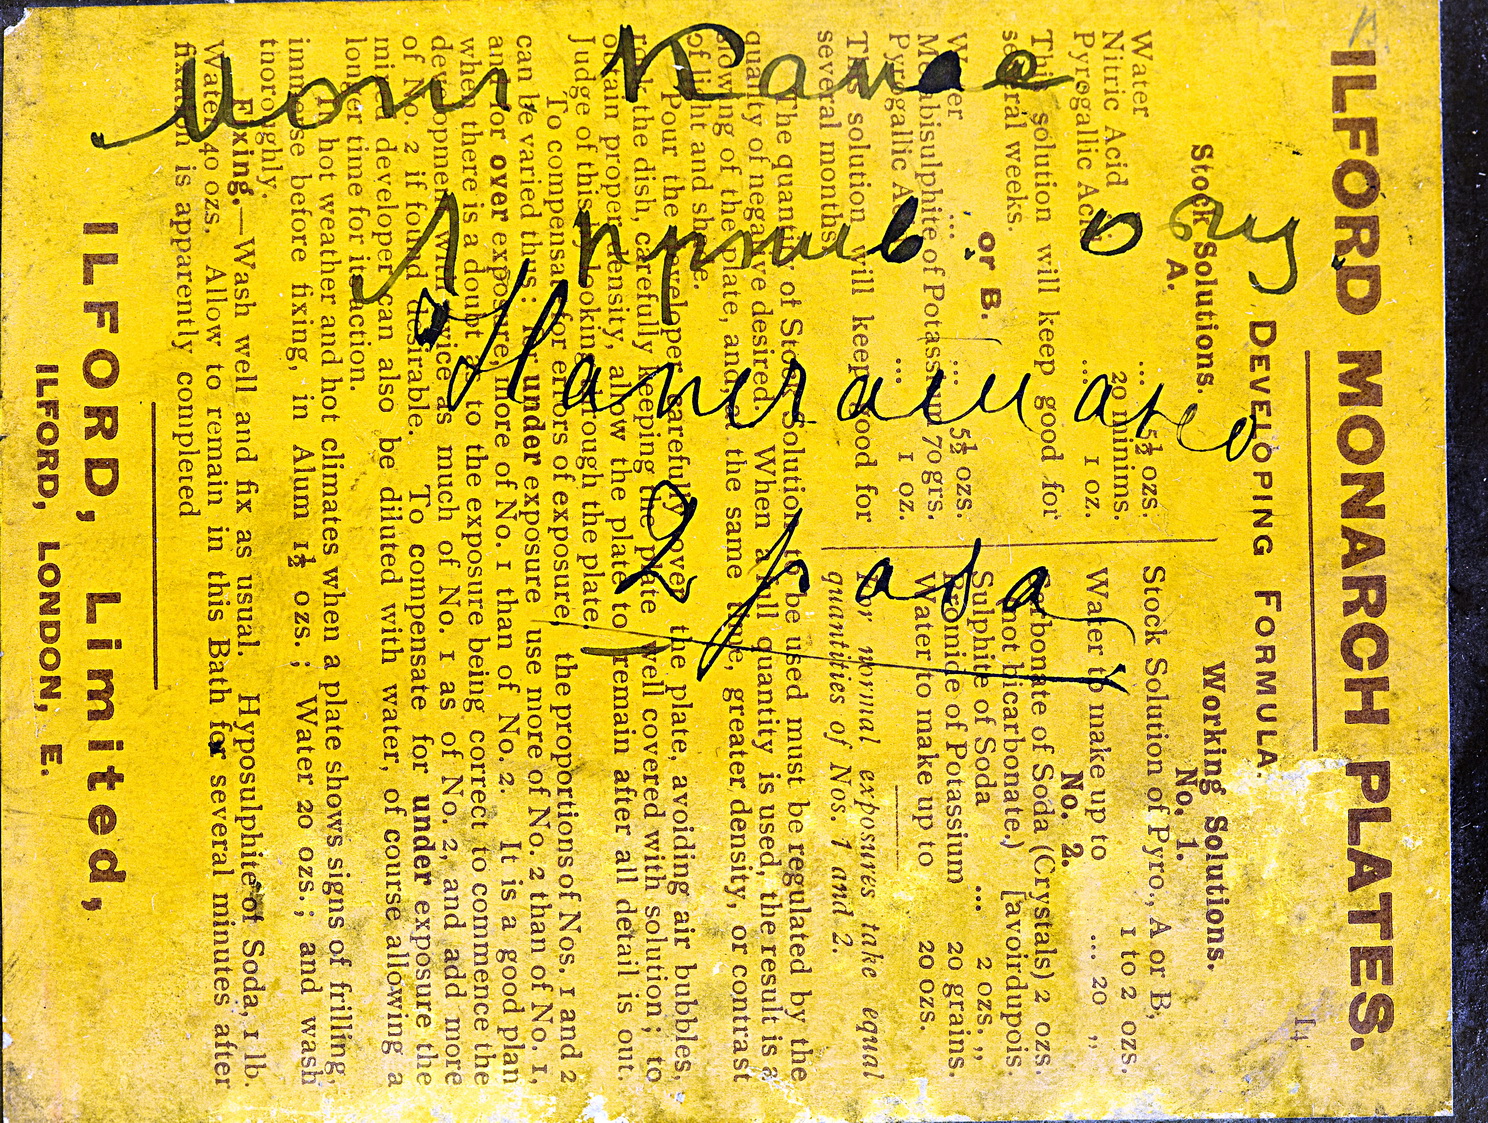 ILFORD MONARCH PLATES.
14
DEVELOPING FORMULA.
Stock Solutions.
A.
Water ... 5½ ozs.
Nitric Acid 20 minims.
Pyrogallic Acid ... 1 oz.
This solution will keep good for
several weeks.
or B.
Water ... ... 5½ ozs.
Metabisulphite of Potassium 70 grs.
Pyrogallic Acid ... 1 oz.
This solution will keep good for
several months.
Working Solutions.
No. 1.
Stock Solution of Pyro., A or B, 1 to 2 ozs.
Water to make up to ... 20 ,,
No. 2.
Carbonate of Soda (Crystals) 2 ozs.
(not bicarbonate,) [avoirdupois
Sulphite of Soda ... 2 ozs. ,,
Bromide of Potassium 20 grains.
Water to make up to 20 ozs.
For normal exposures take equal
quantities of Nos. 1 and 2.
The quantity of Stock Solution to be used must be regulated by the
quality of negative desired. When a full quantity is used, the result is a
slowing of the plate, and, at the same time, greater density, or contrast
of light and shade.
Pour the developer carefully over the plate, avoiding air bubbles,
rock the dish, carefully keeping the plate well covered with solution; to
obtain proper density, allow the plate to remain after all detail is out.
Judge of this by looking through the plate.
To compensate for errors of exposure, the proportions of Nos. 1 and 2
can be varied thus: for under exposure use more of No. 2 than of No. 1,
and for over exposure, more of No. 1 than of No. 2. It is a good plan
when there is a doubt as to the exposure being correct to commence the
development with twice as much of No. 1 as of No. 2, and add more
of No. 2 if found desirable. To compensate for under exposure the
mixed developer can also be diluted with water, of course allowing a
longer time for its action.
In hot weather and hot climates when a plate shows signs of frilling,
immerse before fixing, in Alum 1½ ozs.; Water 20 ozs.; and wash
thoroughly.
Fixing.—Wash well and fix as usual. Hyposulphite of Soda, 1 lb.
Water 40 ozs. Allow to remain in this Bath for several minutes after
fixation is apparently completed
ILFORD, Limited,
ILFORD, LONDON, E.
2